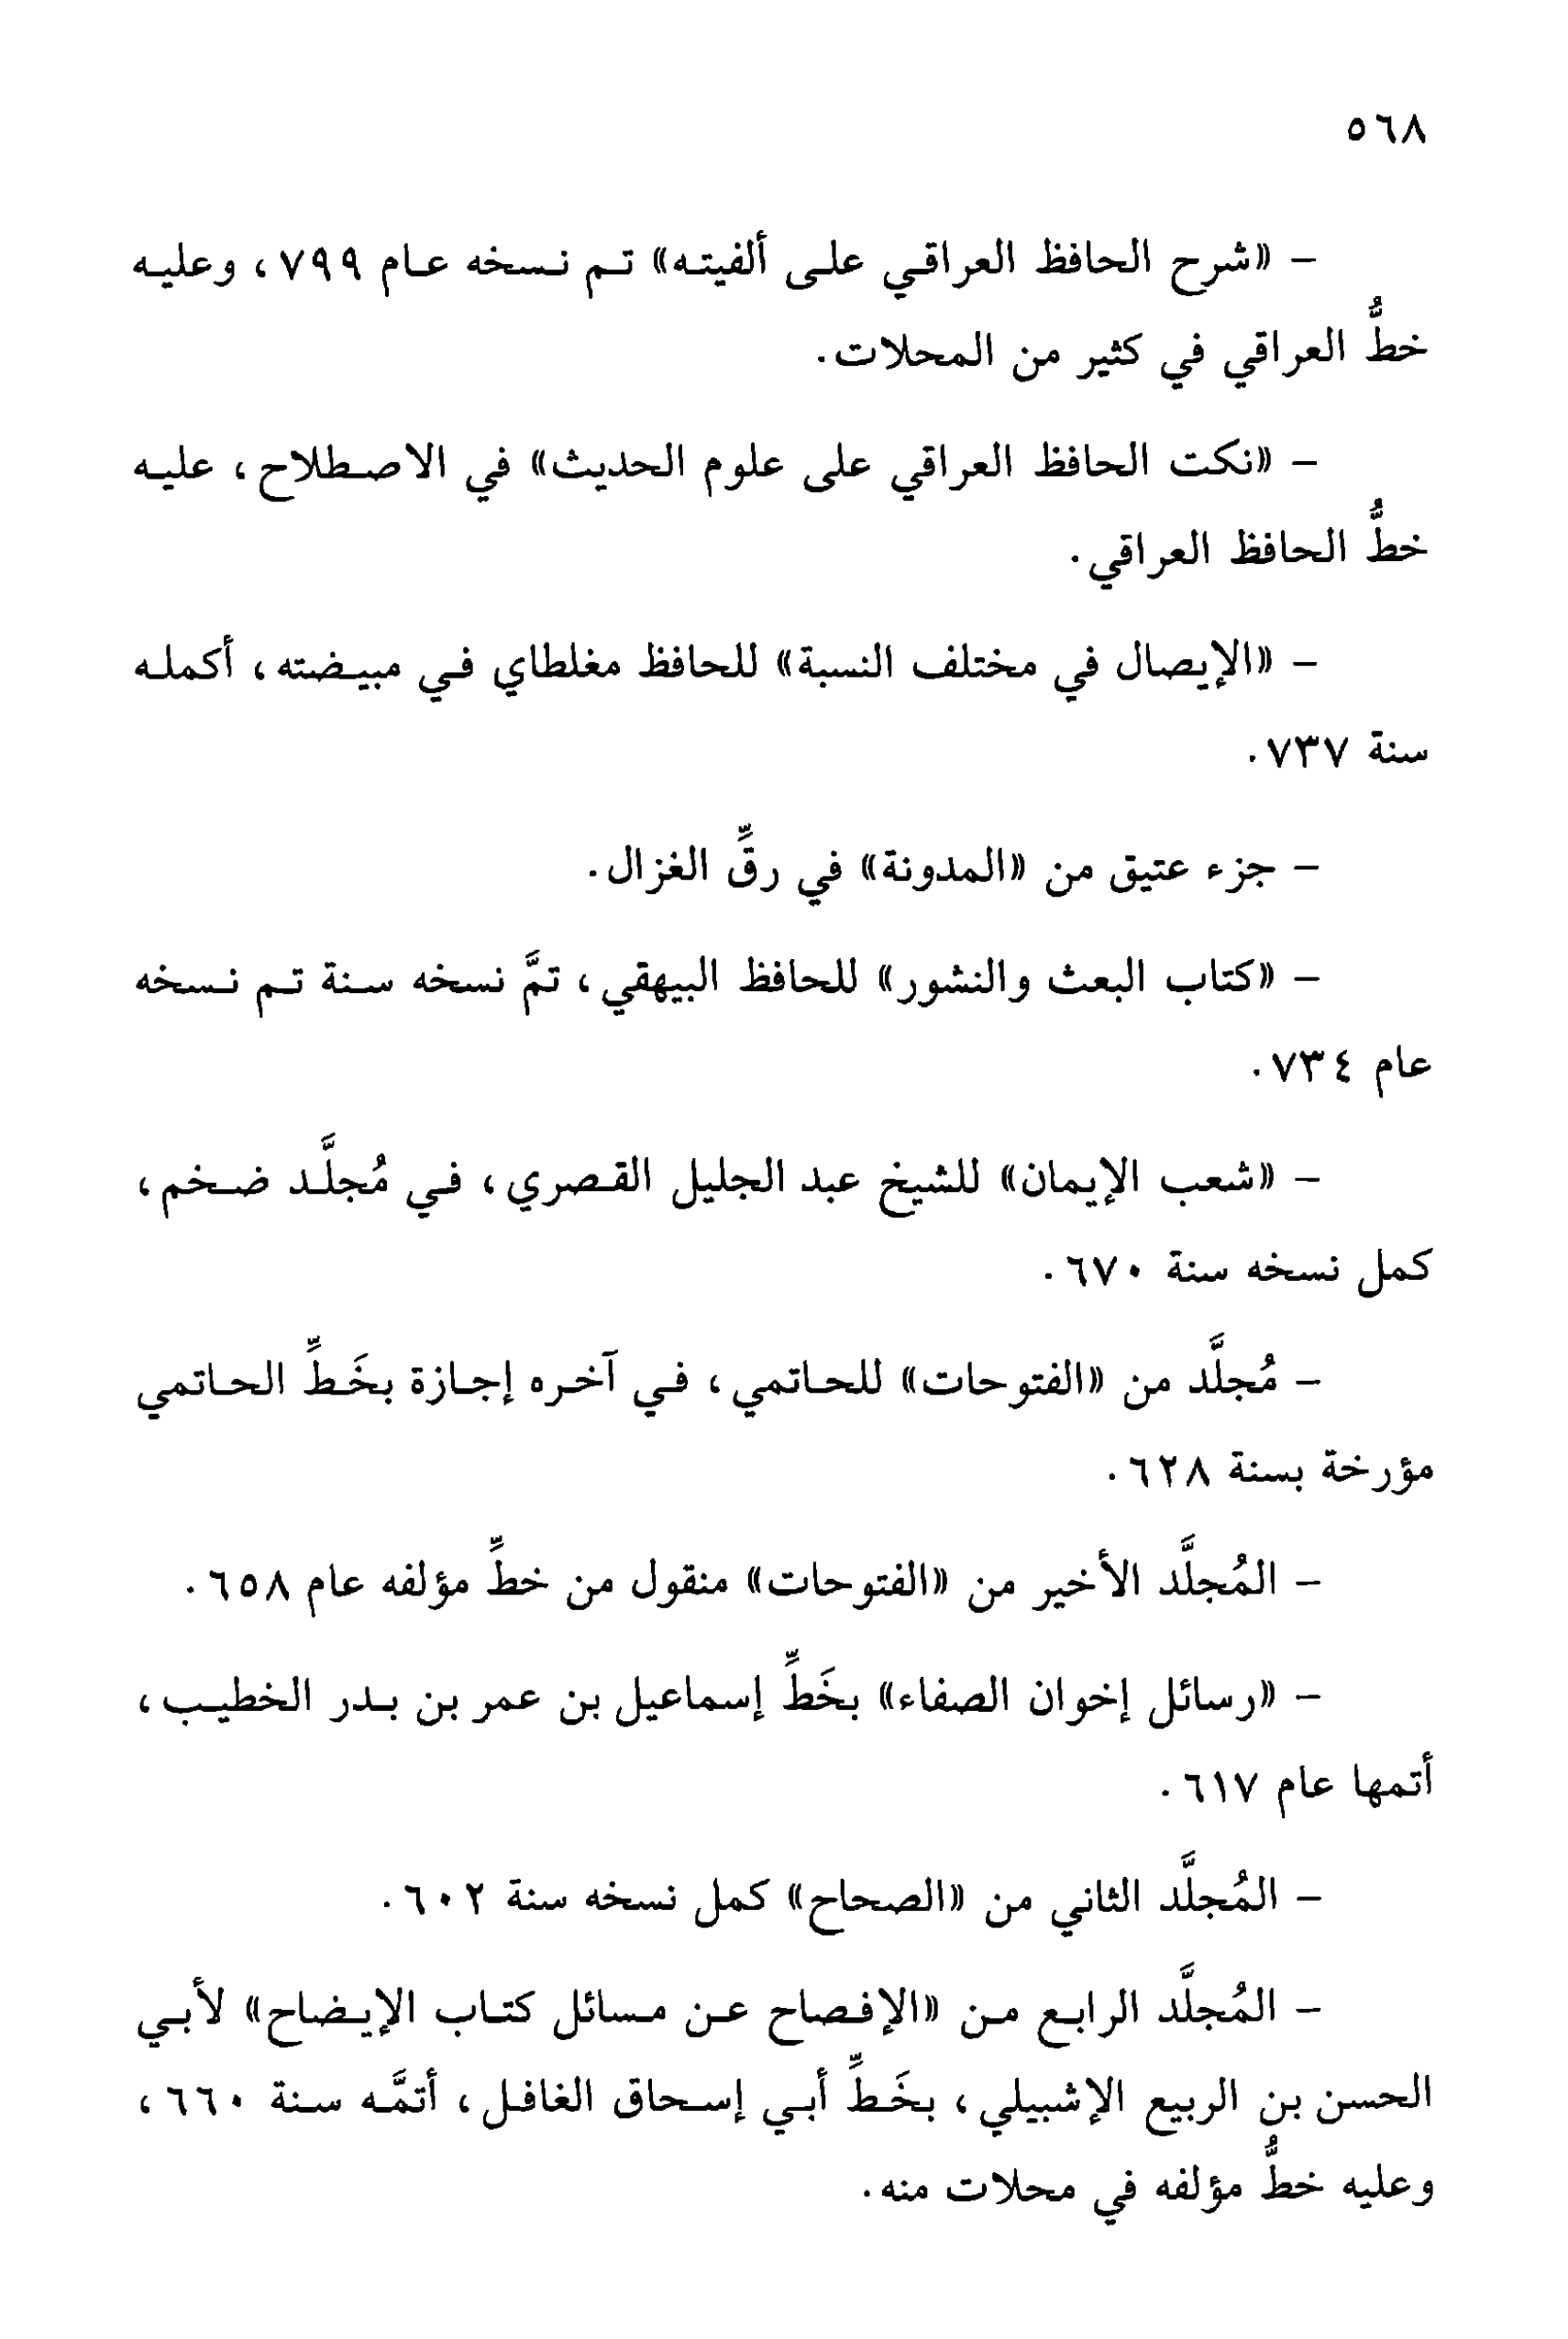 ٥٦٨
- «شرح الحافظ العراقي على ألفيته» تم نسخه عام ٧٩٩، وعليه
خطُّ العراقي في كثير من المحلات.
- «نكت الحافظ العراقي على علوم الحديث» في الاصطلاح، عليه
خطُّ الحافظ العراقي.
- «الإيصال في مختلف النسبة» للحافظ مغلطاي في مبيضته، أكمله
سنة ٧٣٧.
- جزء عتيق من «المدونة» في رقِّ الغزال.
- «كتاب البعث والنشور» للحافظ البيهقي، تمَّ نسخه سنة تم نسخه
عام ٧٣٤.
- «شعب الإيمان» للشيخ عبد الجليل القصري، في مُجلَّد ضخم،
كمل نسخه سنة ٦٧٠.
- مُجلَّد من «الفتوحات» للحاتمي، في آخره إجازة بخَطِّ الحاتمي
مؤرخة بسنة ٦٢٨.
- المُجلَّد الأخير من «الفتوحات» منقول من خطِّ مؤلفه عام ٦٥٨.
- «رسائل إخوان الصفاء» بخَطِّ إسماعيل بن عمر بن بدر الخطيب،
أتمها عام ٦١٧.
- المُجلَّد الثاني من «الصحاح» كمل نسخه سنة ٦٠٢.
- المُجلَّد الرابع من «الإفصاح عن مسائل كتاب الإيضاح» لأبي
الحسن بن الربيع الإشبيلي، بخَطِّ أبي إسحاق الغافل، أتمَّه سنة ٦٦٠،
وعليه خطُّ مؤلفه في محلات منه.